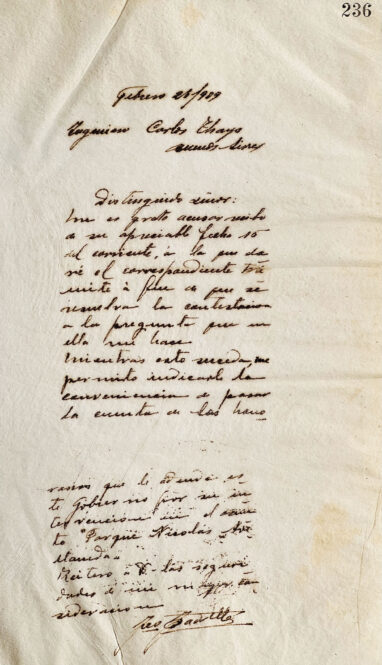 236
Febrero 26/909
Ingeniero Carlos Thays
Buenos Aires
Distinguido señor:
Me es grato acusar recibo
de su apreciable fecha 15
del corriente, á la que da
ré el correspondiente trá
mite á fin de que se
resuelva la contestacion
a la pregunta que en
ella me hace
Mientras esto suceda, me
permito indicarle la
conveniencia de pasar
la cuenta de los hono
rarios que le adeuda es
te Gobierno por su in
tervencion en el
to "Parque Nicolás Ave
llaneda"
Reitero á V. las seguri
dades de mi mayor con
sideracion